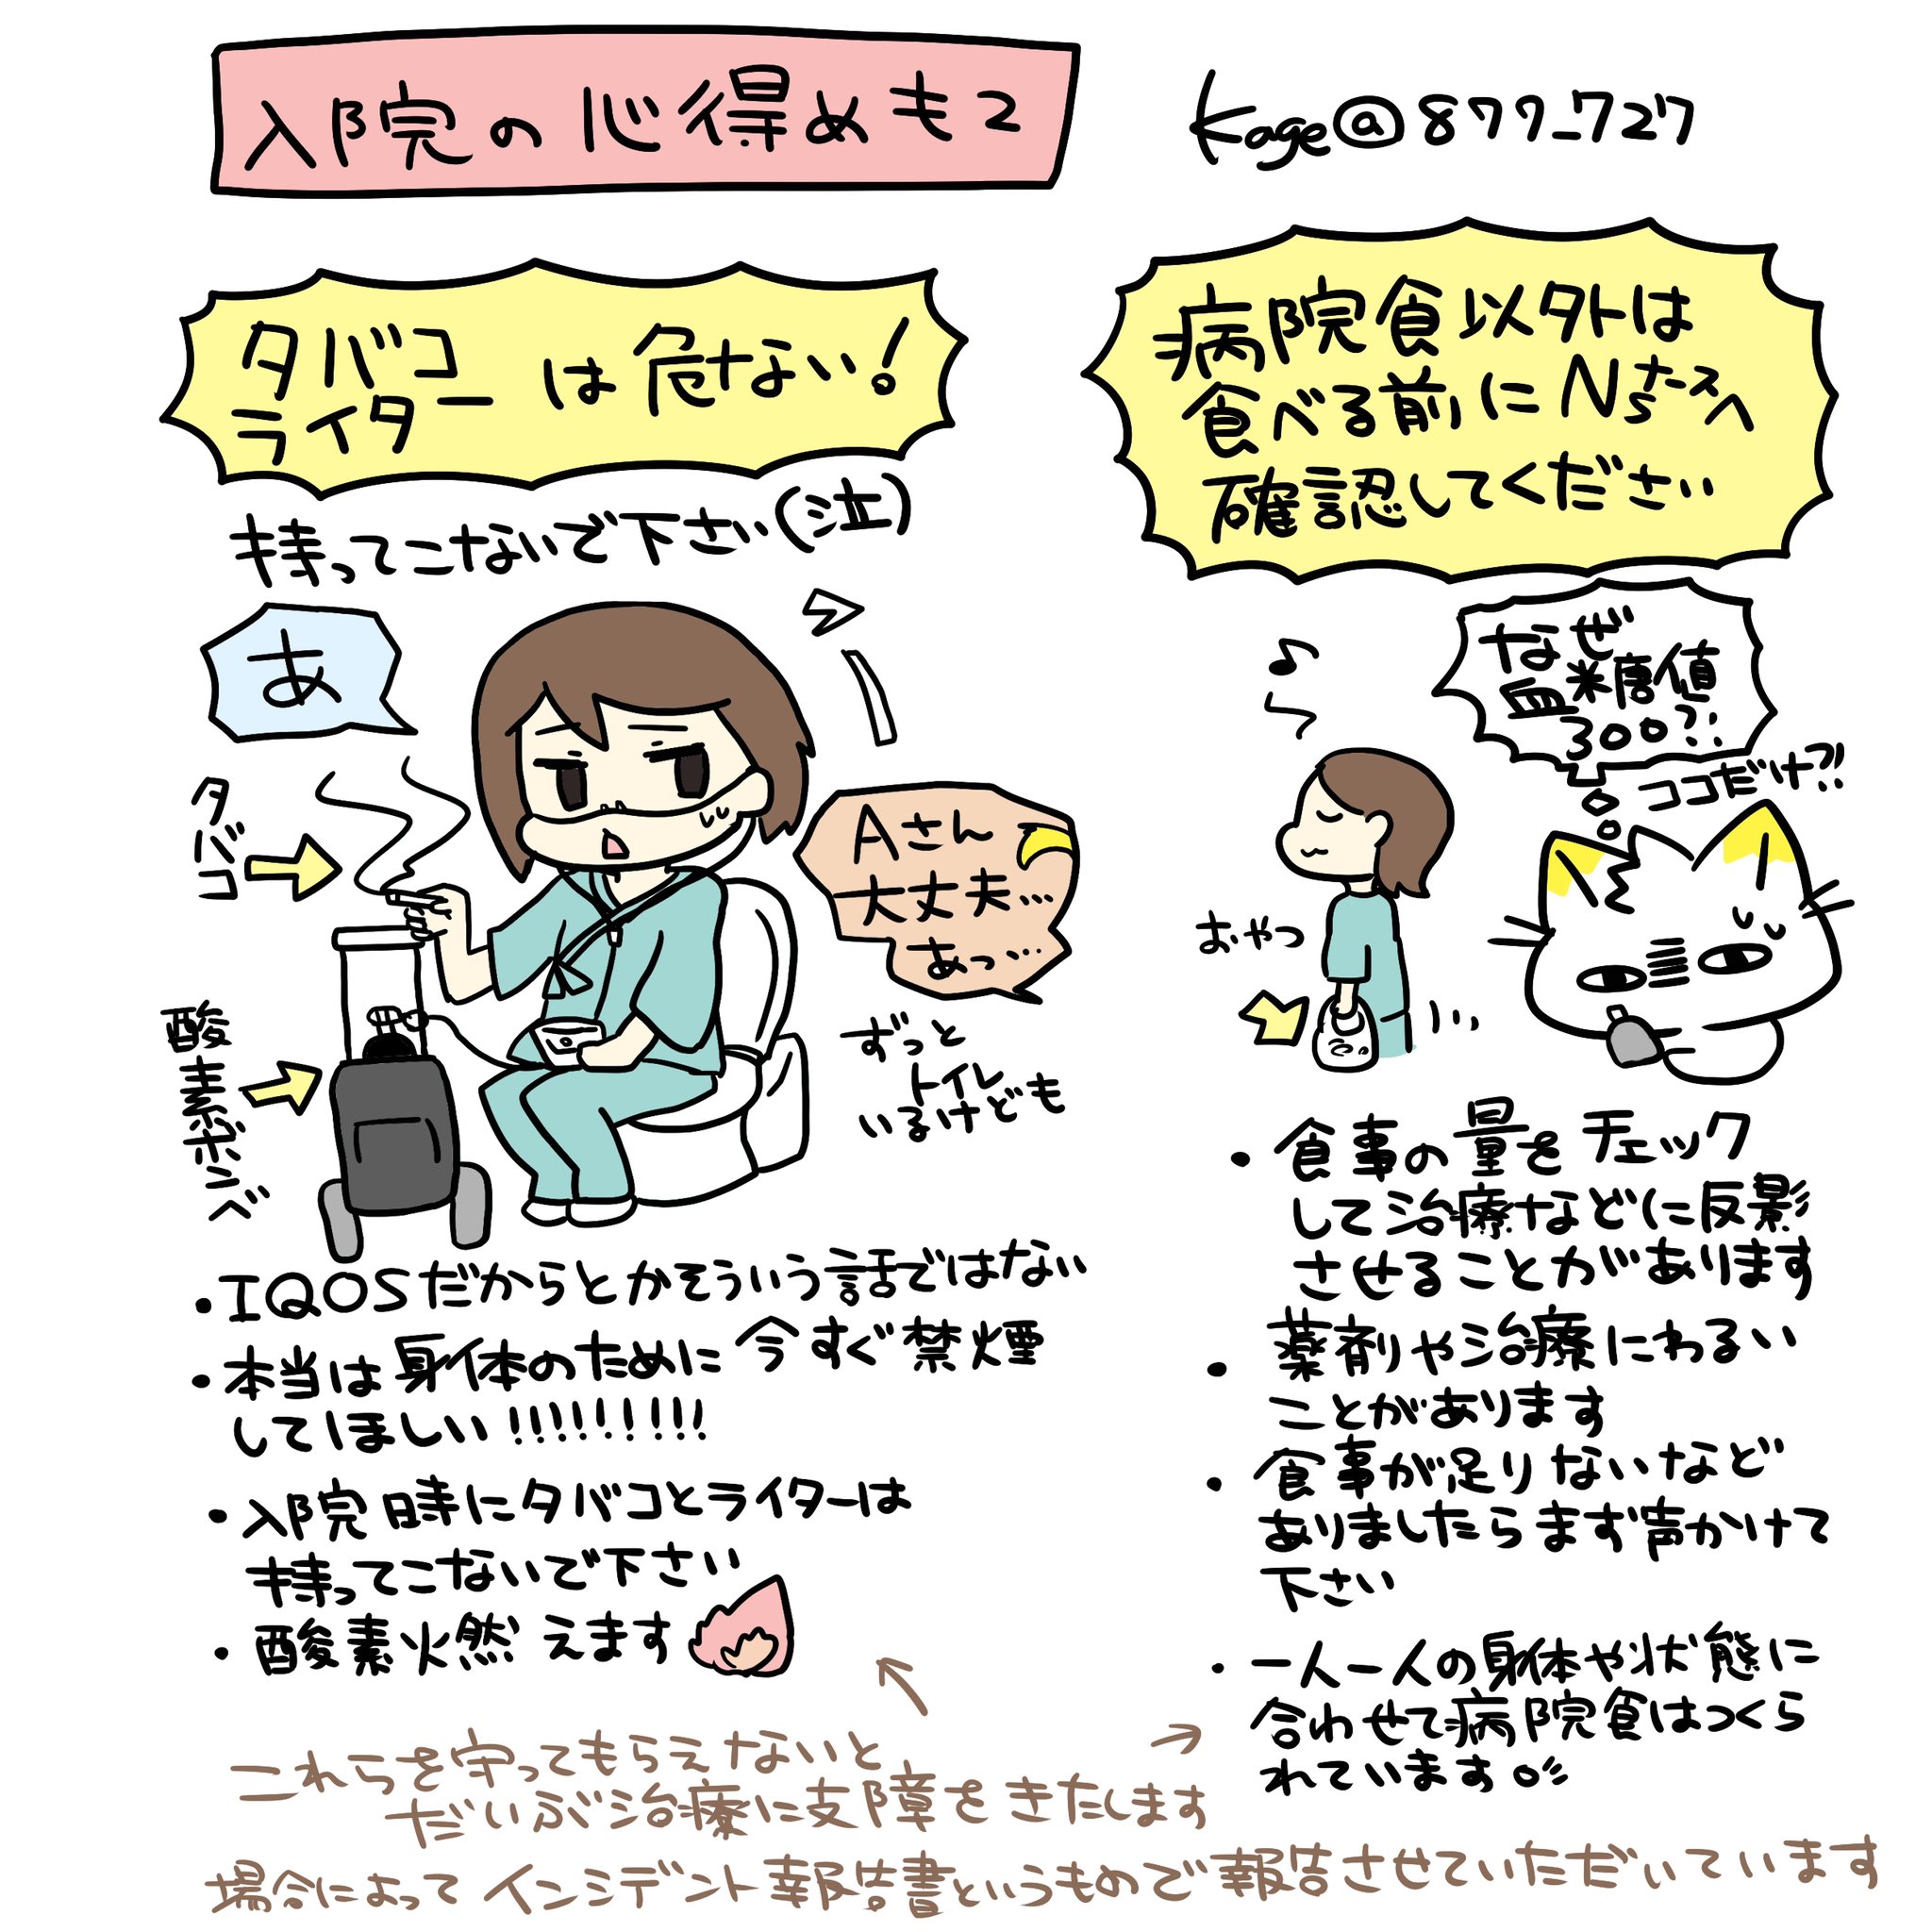 入院の心得めも2
Kage@877_727
タバコ
ライター
は危ない!
持ってこないで下さい(泣)
あ
タバコ
酸素ボンベ
Aさん
大丈夫…
あっ…
ずっと
トイレ
いるけども
・IQOSだからとかそういう話ではない
・本当は身体のために今すぐ禁煙
してほしい!!!!!!!!!
・入院時にタバコとライターは
持ってこないで下さい
・酸素火然えます
病院食以外は
食べる前にNsナースへ
確認してください
なぜ
血糖値
300?!
ココだけ?!
おやつ
・食事の量をチェック
して治療などに反影
させることがあります
・薬剤や治療にわるい
ことがあります
・食事が足りないなど
ありましたらまず声かけて
下さい
・一人一人の身体や状態に
合わせて病院食はつくら
れています
これらを守ってもらえないと
だいぶ治療に支障をきたします
場合によってインシデント報告書というもので報告させていただいています